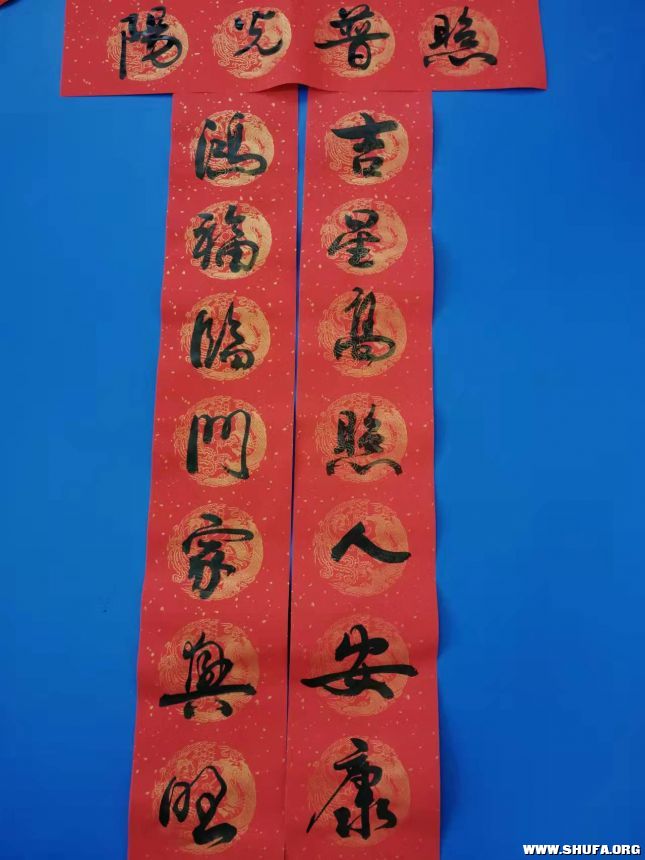 陽光普照
吉星高照人安康
鴻福臨門家興旺
WWW.SHUFA.ORG